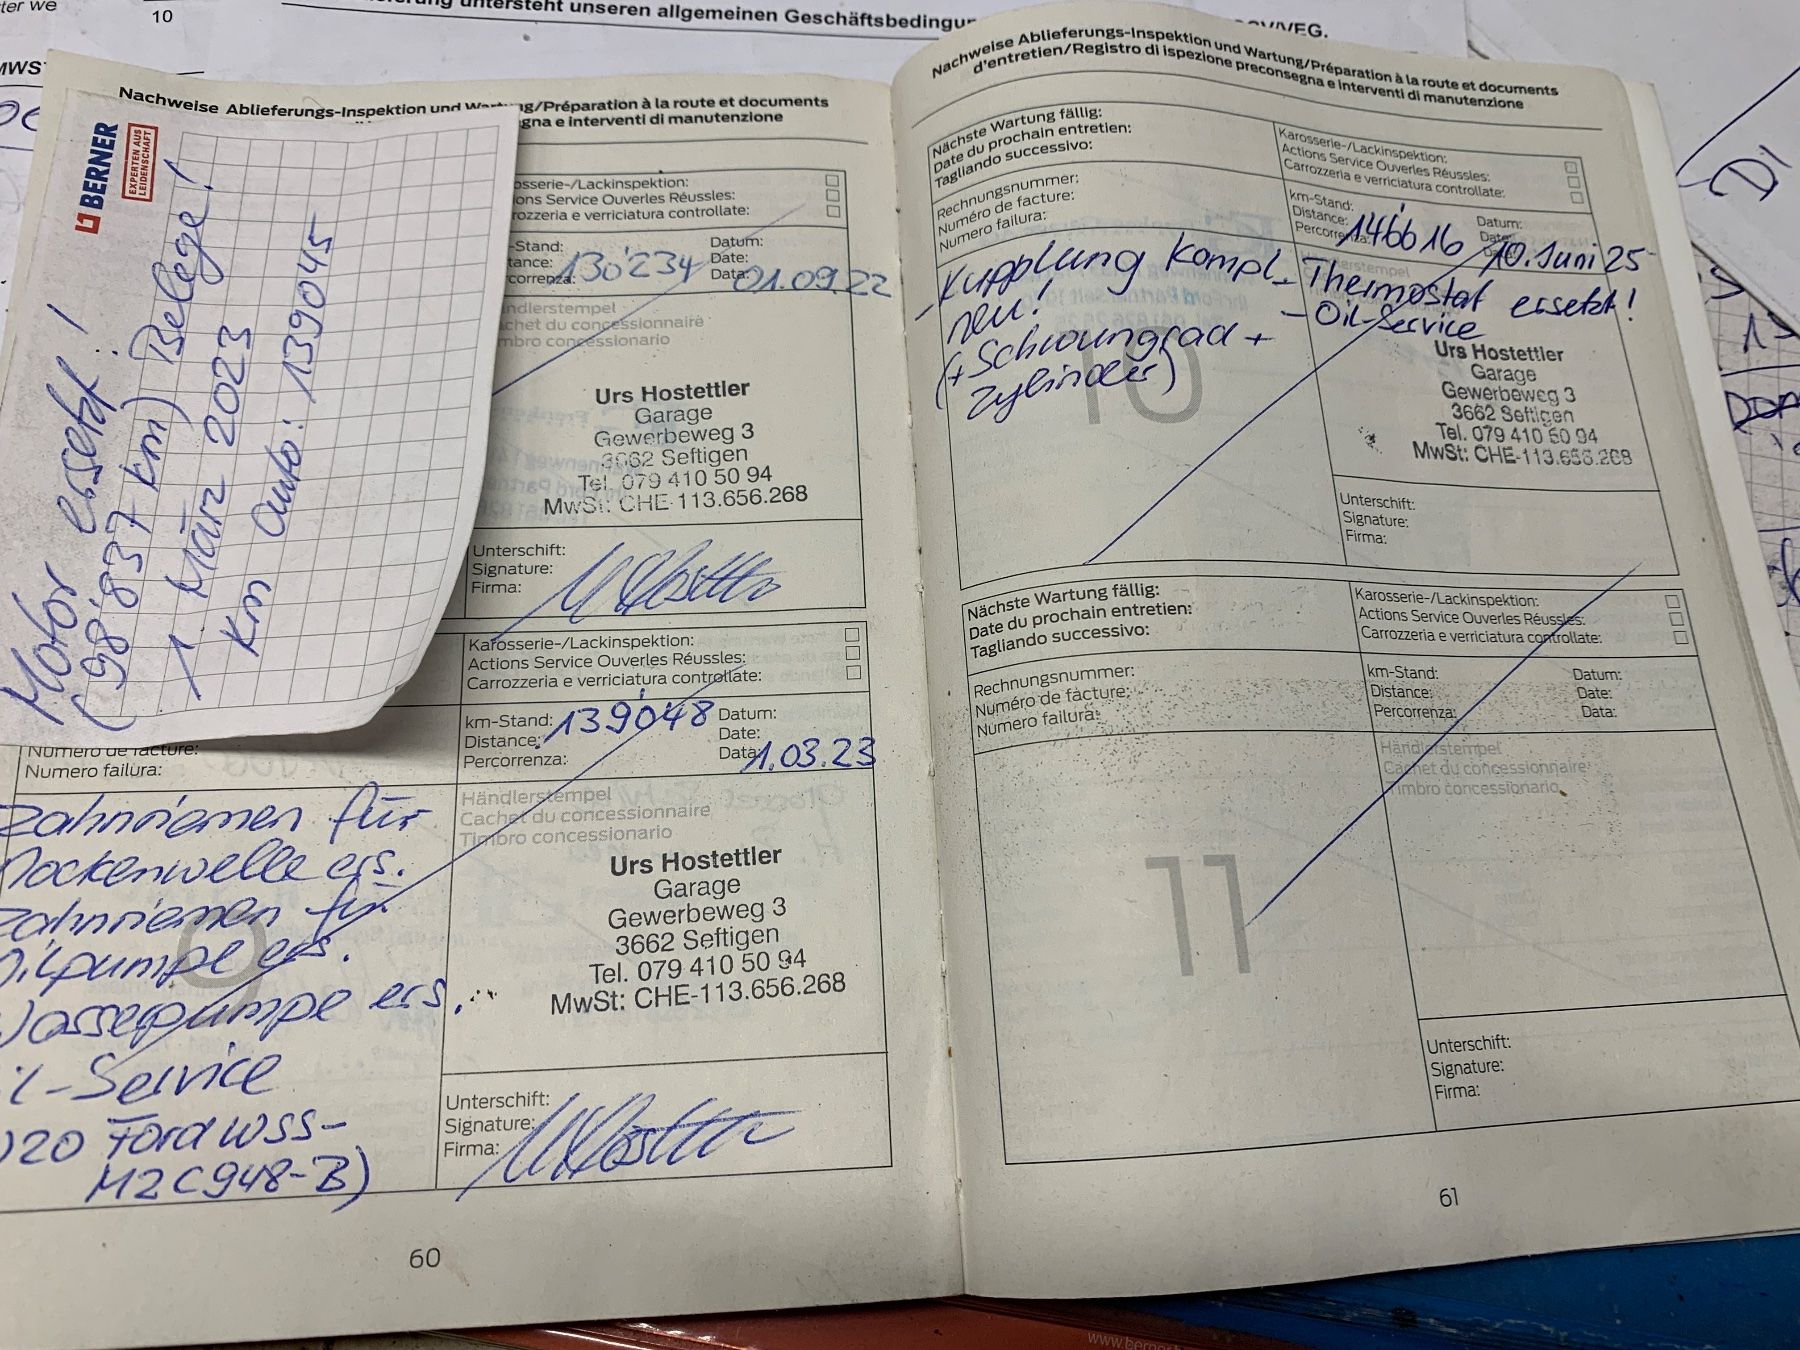 ter we
10
erung untersteht unseren allgemeinen Geschäftsbedingu
GV/VEG.
MWS
BERNER
EXPERTEN AUS
LEIDENSCHAFT
Motor ersetzt!
(98'837 km) Belege!
1. März 2023
km auto: 139045
Nachweise Ablieferungs-Inspektion und Wartung/Préparation à la route et documents
gna e interventi di manutenzione
osserie-/Lackinspektion:
ions Service Ouverles Réussles:
rozzeria e verriciatura controllate:
-Stand:
tance:
correnza:
130'234
Datum:
Date:
Data:
01.09.22
ndlerstempel
chet du concessionnaire
mbro concessionario
Urs Hostettler
Garage
Gewerbeweg 3
3662 Seftigen
Tel. 079 410 50 94
MwSt: CHE-113.656.268
Unterschift:
Signature:
Firma:
Karosserie-/Lackinspektion:
Actions Service Ouverles Réussles:
Carrozzeria e verriciatura controllate:
Numéro de facture:
Numero failura:
km-Stand:
Distance:
Percorrenza:
139'048
Datum:
Date:
Data:
1.03.23
Zahnriemen für
Nockenwelle ers.
Zahnriemen für
Oilpumpe ers.
Wasserpumpe ers.
il-Service
)20 Ford WSS-
M2C948-B)
9
Händlerstempel
Cachet du concessionnaire
Timbro concessionario
Urs Hostettler
Garage
Gewerbeweg 3
3662 Seftigen
Tel. 079 410 50 94
MwSt: CHE-113.656.268
Unterschift:
Signature:
Firma:
60
Nachweise Ablieferungs-Inspektion und Wartung/Préparation à la route et documents
d'entretien/Registro di ispezione preconsegna e interventi di manutenzione
Nächste Wartung fällig:
Date du prochain entretien:
Tagliando successivo:
Karosserie-/Lackinspektion:
Actions Service Ouverles Réussles:
Carrozzeria e verriciatura controllate:
Rechnungsnummer:
Numéro de facture:
Numero failura:
km-Stand:
Distance:
Percorrenza:
146'616
Datum:
Date:
10. Juni 25
- Kupplung kompl.
neu!
(+Schwungrad +
Zylinder)
- Thermostat ersetzt!
- Oil-Service
10
Urs Hostettler
Garage
Gewerbeweg 3
3662 Seftigen
Tel. 079 410 50 94
MwSt: CHE-113.656.268
Unterschift:
Signature:
Firma:
Nächste Wartung fällig:
Date du prochain entretien:
Tagliando successivo:
Karosserie-/Lackinspektion:
Actions Service Ouverles Réussles:
Carrozzeria e verriciatura controllate:
Rechnungsnummer:
Numéro de facture:
Numero failura:
km-Stand:
Distance:
Percorrenza:
Datum:
Date:
Data:
Händlerstempel
Cachet du concessionnaire
Timbro concessionario
11
Unterschift:
Signature:
Firma:
61
Di